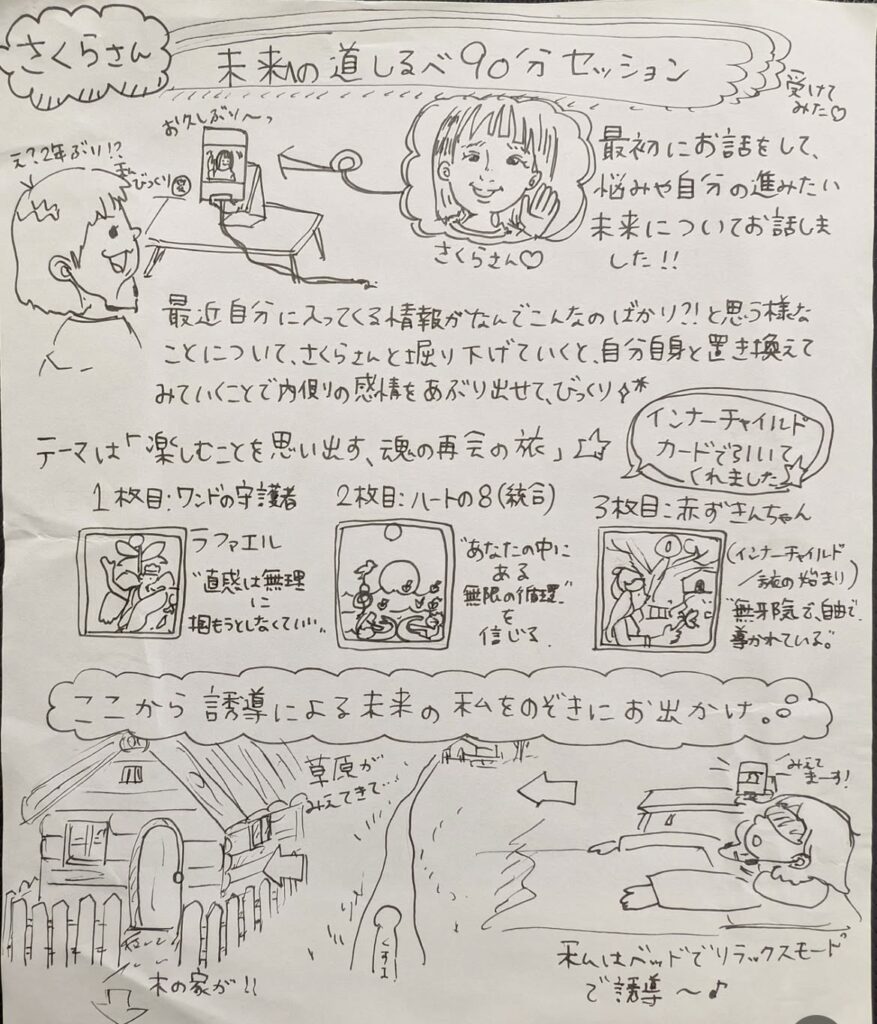 さくらさん
未来への道しるべ90分セッション
受けて
みた♡
お久しぶり〜っ
え?2年ぶり!?
びっくり
最初にお話をして、
悩みや自分の進みたい
未来についてお話しま
した!!
さくらさん♡
最近自分に入ってくる情報がなんでこんなのばかり?!と思う様な
ことについて、さくらさんと掘り下げていくと、自分自身と置き換えて
みていくことで内側の感情をあぶり出せて、びっくり
テーマは「楽しむことを思い出す、魂の再会の旅」☆
インナーチャイルド
カードで引いて
くれました
1枚目:ワンドの守護者
ラファエル
"直感は無理
に
掴もうとしなくていい"
2枚目:ハートの8(統合)
"あなたの中に
ある
無限の循環"
を
信じる
3枚目:赤ずきんちゃん
(インナーチャイルド
/旅の始まり)
"無邪気で、自由で
導かれている"
ここから誘導による未来の私をのぞきにお出かけ。
草原が
みえてきて…
みえて
まーす!
木の家が!!
私はベッドでリラックスモード
で誘導〜♪